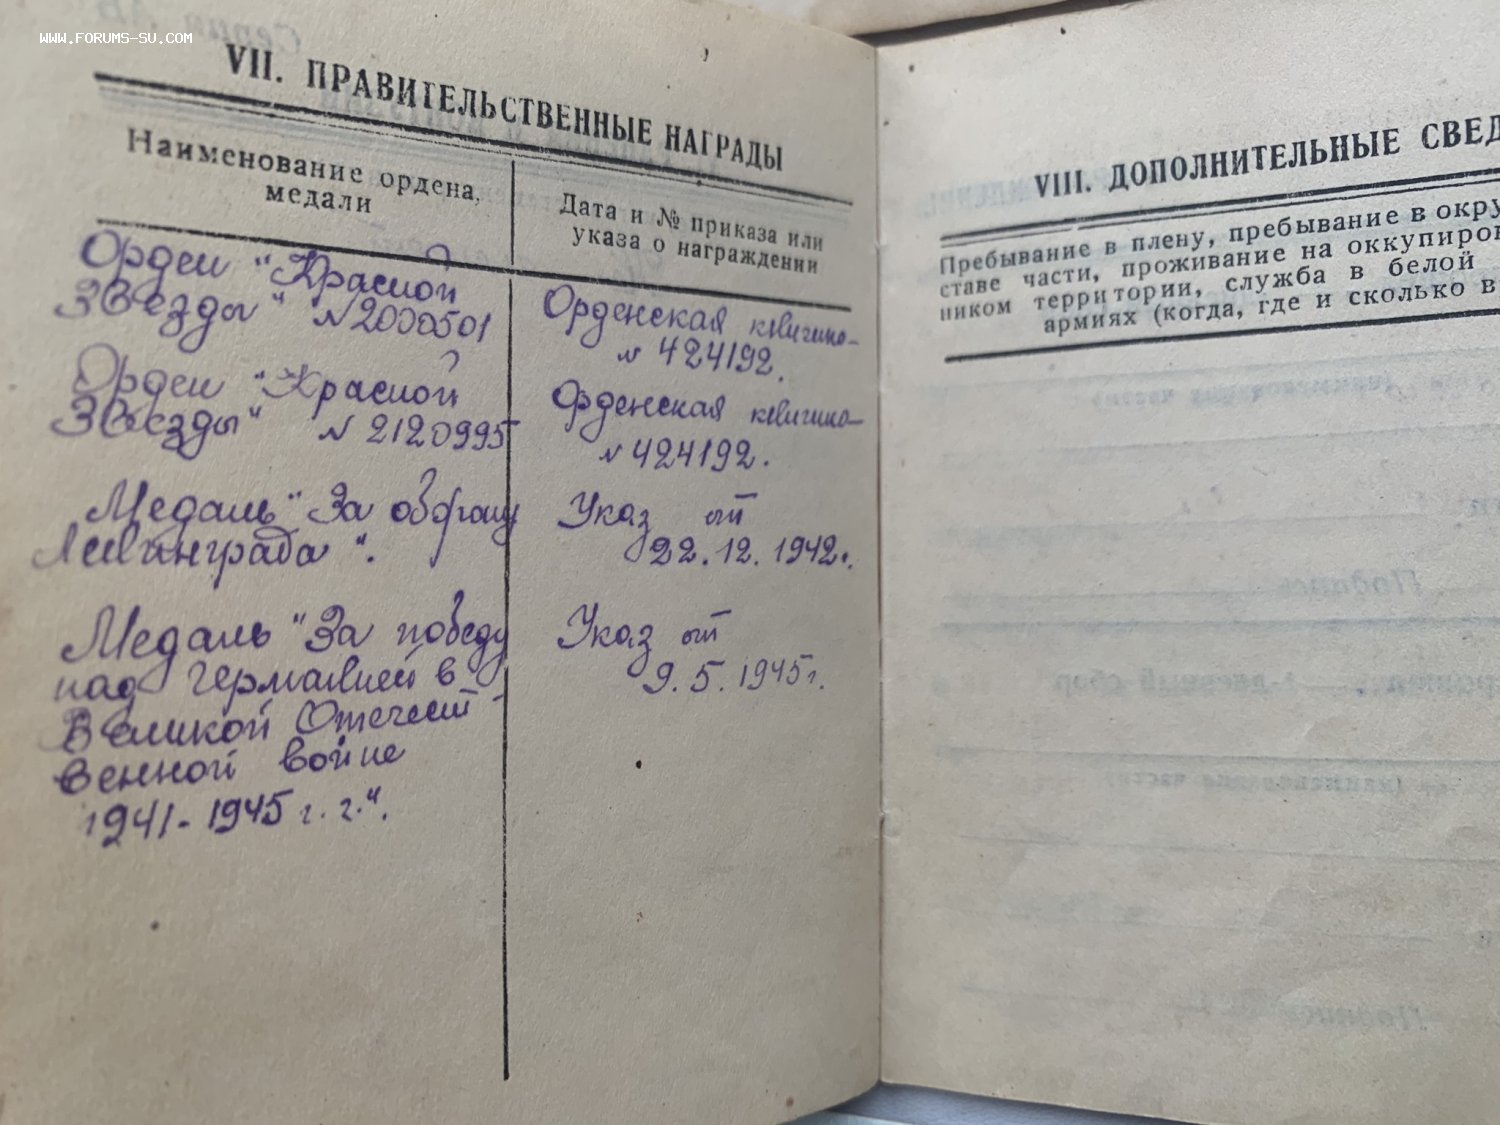 WWW.FORUMS-SU.COM
Серия АБ
VII. ПРАВИТЕЛЬСТВЕННЫЕ НАГРАДЫ
Наименование ордена,
медали
Дата и № приказа или
указа о награждении
Орден "Красной
Звезды" N2000501
Орденская книжка
N 424192.
Орден "Красной
Звезды" N 2120995
Орденская книжка
N 424192.
Медаль "За оборону
Ленинграда".
Указ от
22.12.1942г.
Медаль "За победу
над Германией в
Великой Отечест-
венной войне
1941-1945 г.г.".
Указ от
9.5.1945г.
VIII. ДОПОЛНИТЕЛЬНЫЕ СВЕД
Пребывание в плену, пребывание в окру
ставе части, проживание на оккупиров
ником территории, служба в белой
армиях (когда, где и сколько в